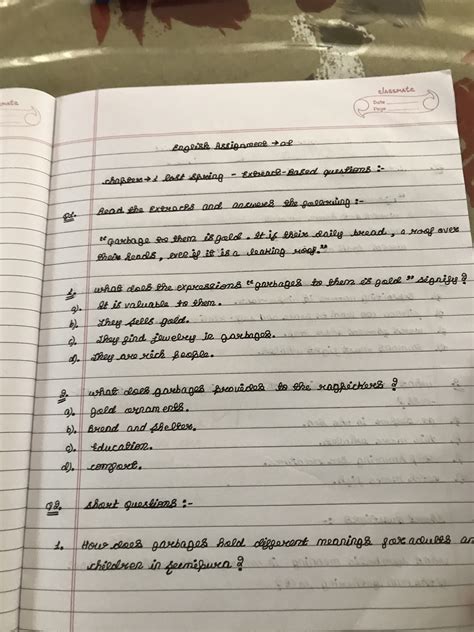 classmate
Date
Page
English Assignment → 02
chapter → 1 Lost Spring - Extract-Based questions :-
Q1. Read the Extracts and answers the following :-
"Garbage to them is gold. It if their daily bread, a roof over
their heads, even if it is a leaking roof."
1. what does the expressions "garbages to them is gold" signify ?
a). It is valuable to them.
b). They sells gold.
c). They find jewelry in garbages.
d). They are rich people.
2. what does garbages provides to the ragpickers ?
a). gold ornaments.
b). Bread and shelter.
c). Education.
d). comfort.
Q2. short questions :-
1. How does garbages hold different meanings for adults an
children in seemapura ?